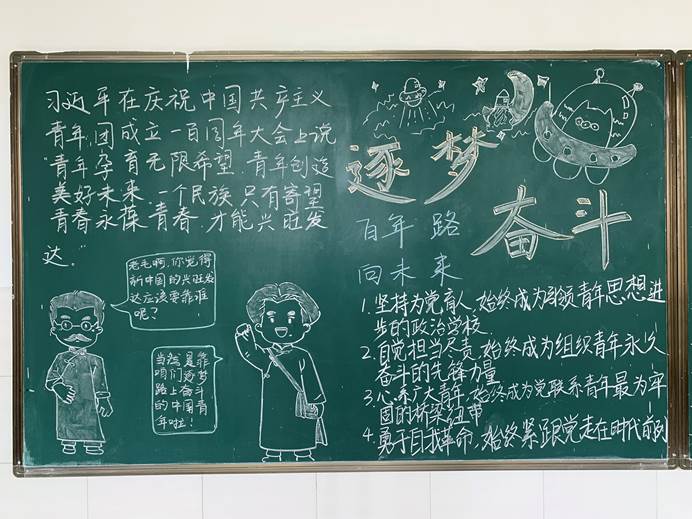 习近平在庆祝中国共产主义
青年团成立一百周年大会上说
"青年孕育无限希望,青年创造
美好未来.一个民族只有寄望
青春永葆青春,才能兴旺发
达."
老毛啊,你觉得
新中国的兴旺发
达应该要靠谁
呢?
当然是靠
咱们逐梦
路上奋斗
的中国青
年啦!
逐梦
奋斗
百年路
向未来
1.坚持为党育人,始终成为引领青年思想进
步的政治学校.
2.自觉担当尽责,始终成为组织青年永久
奋斗的先锋力量
3.心系广大青年,始终成为党联系青年最为牢
固的桥梁纽带
4.勇于自我革命,始终紧跟党走在时代前列